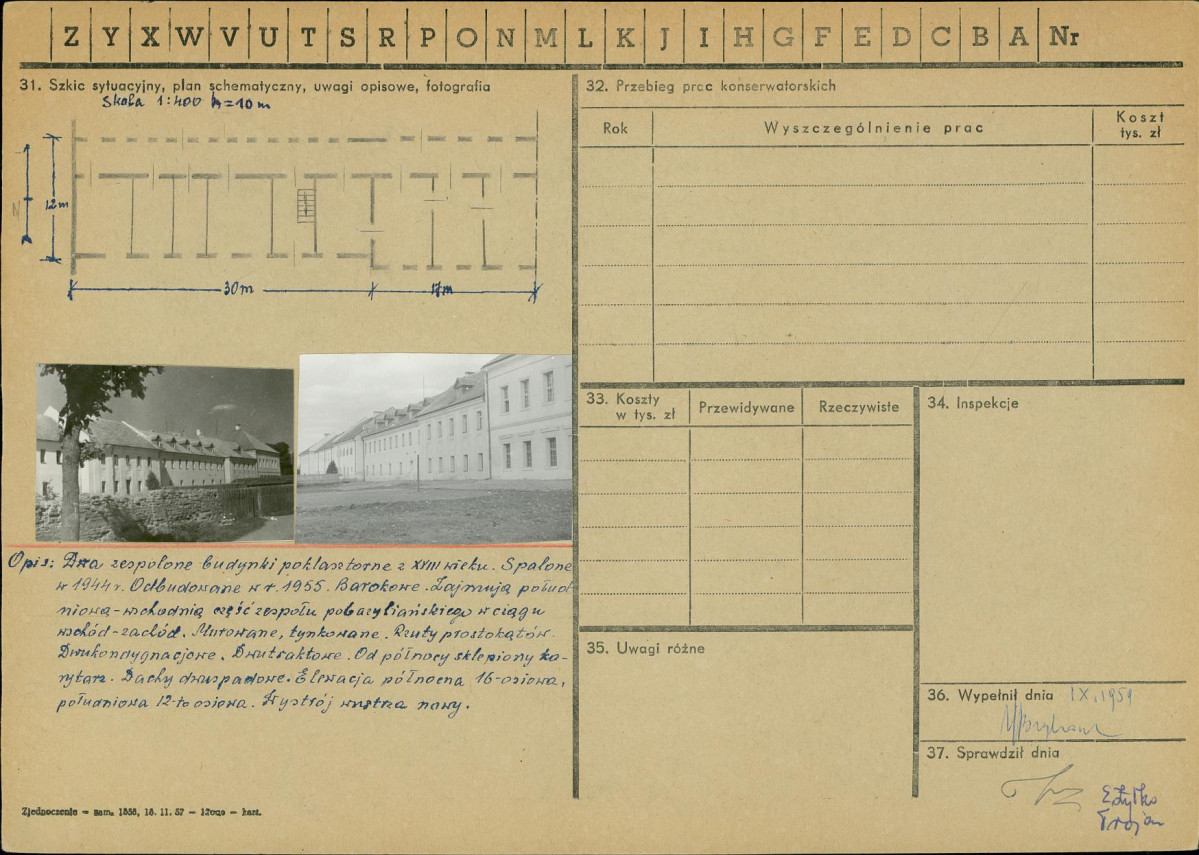 Z Y X W V U T S R P O N M L K J I H G F E D C B A Nr
31. Szkic sytuacyjny, plan schematyczny, uwagi opisowe, fotografia
Skala 1:400 h=10m
N
12m
30m
17m
Opis: Dwa zespolone budynki poklasztorne z XVIII wieku. Spalone
w 1944r. Odbudowane w r. 1955. Barokowe. Zajmują połud
niową-wschodnią część zespołu pobazyliańskiego w ciągu
wschód-zachód. Murowane, tynkowane. Rzuty prostokątów.
Dwukondygnacjowe. Dwutraktowe. Od północy sklepiony ko-
rytarz. Dachy dwuspadowe. Elewacja północna 16-osiowa,
południowa 12-to osiowa. Wystrój wnętrza nowy.
Zjednoczenie — zam. 1858, 18. 11. 57 — 12000 — kart.
32. Przebieg prac konserwatorskich
Rok
Wyszczególnienie prac
Koszt
tys. zł
33. Koszty
w tys. zł
Przewidywane
Rzeczywiste
34. Inspekcje
35. Uwagi różne
36. Wypełnił dnia IX.1959
37. Sprawdził dnia
Trojan